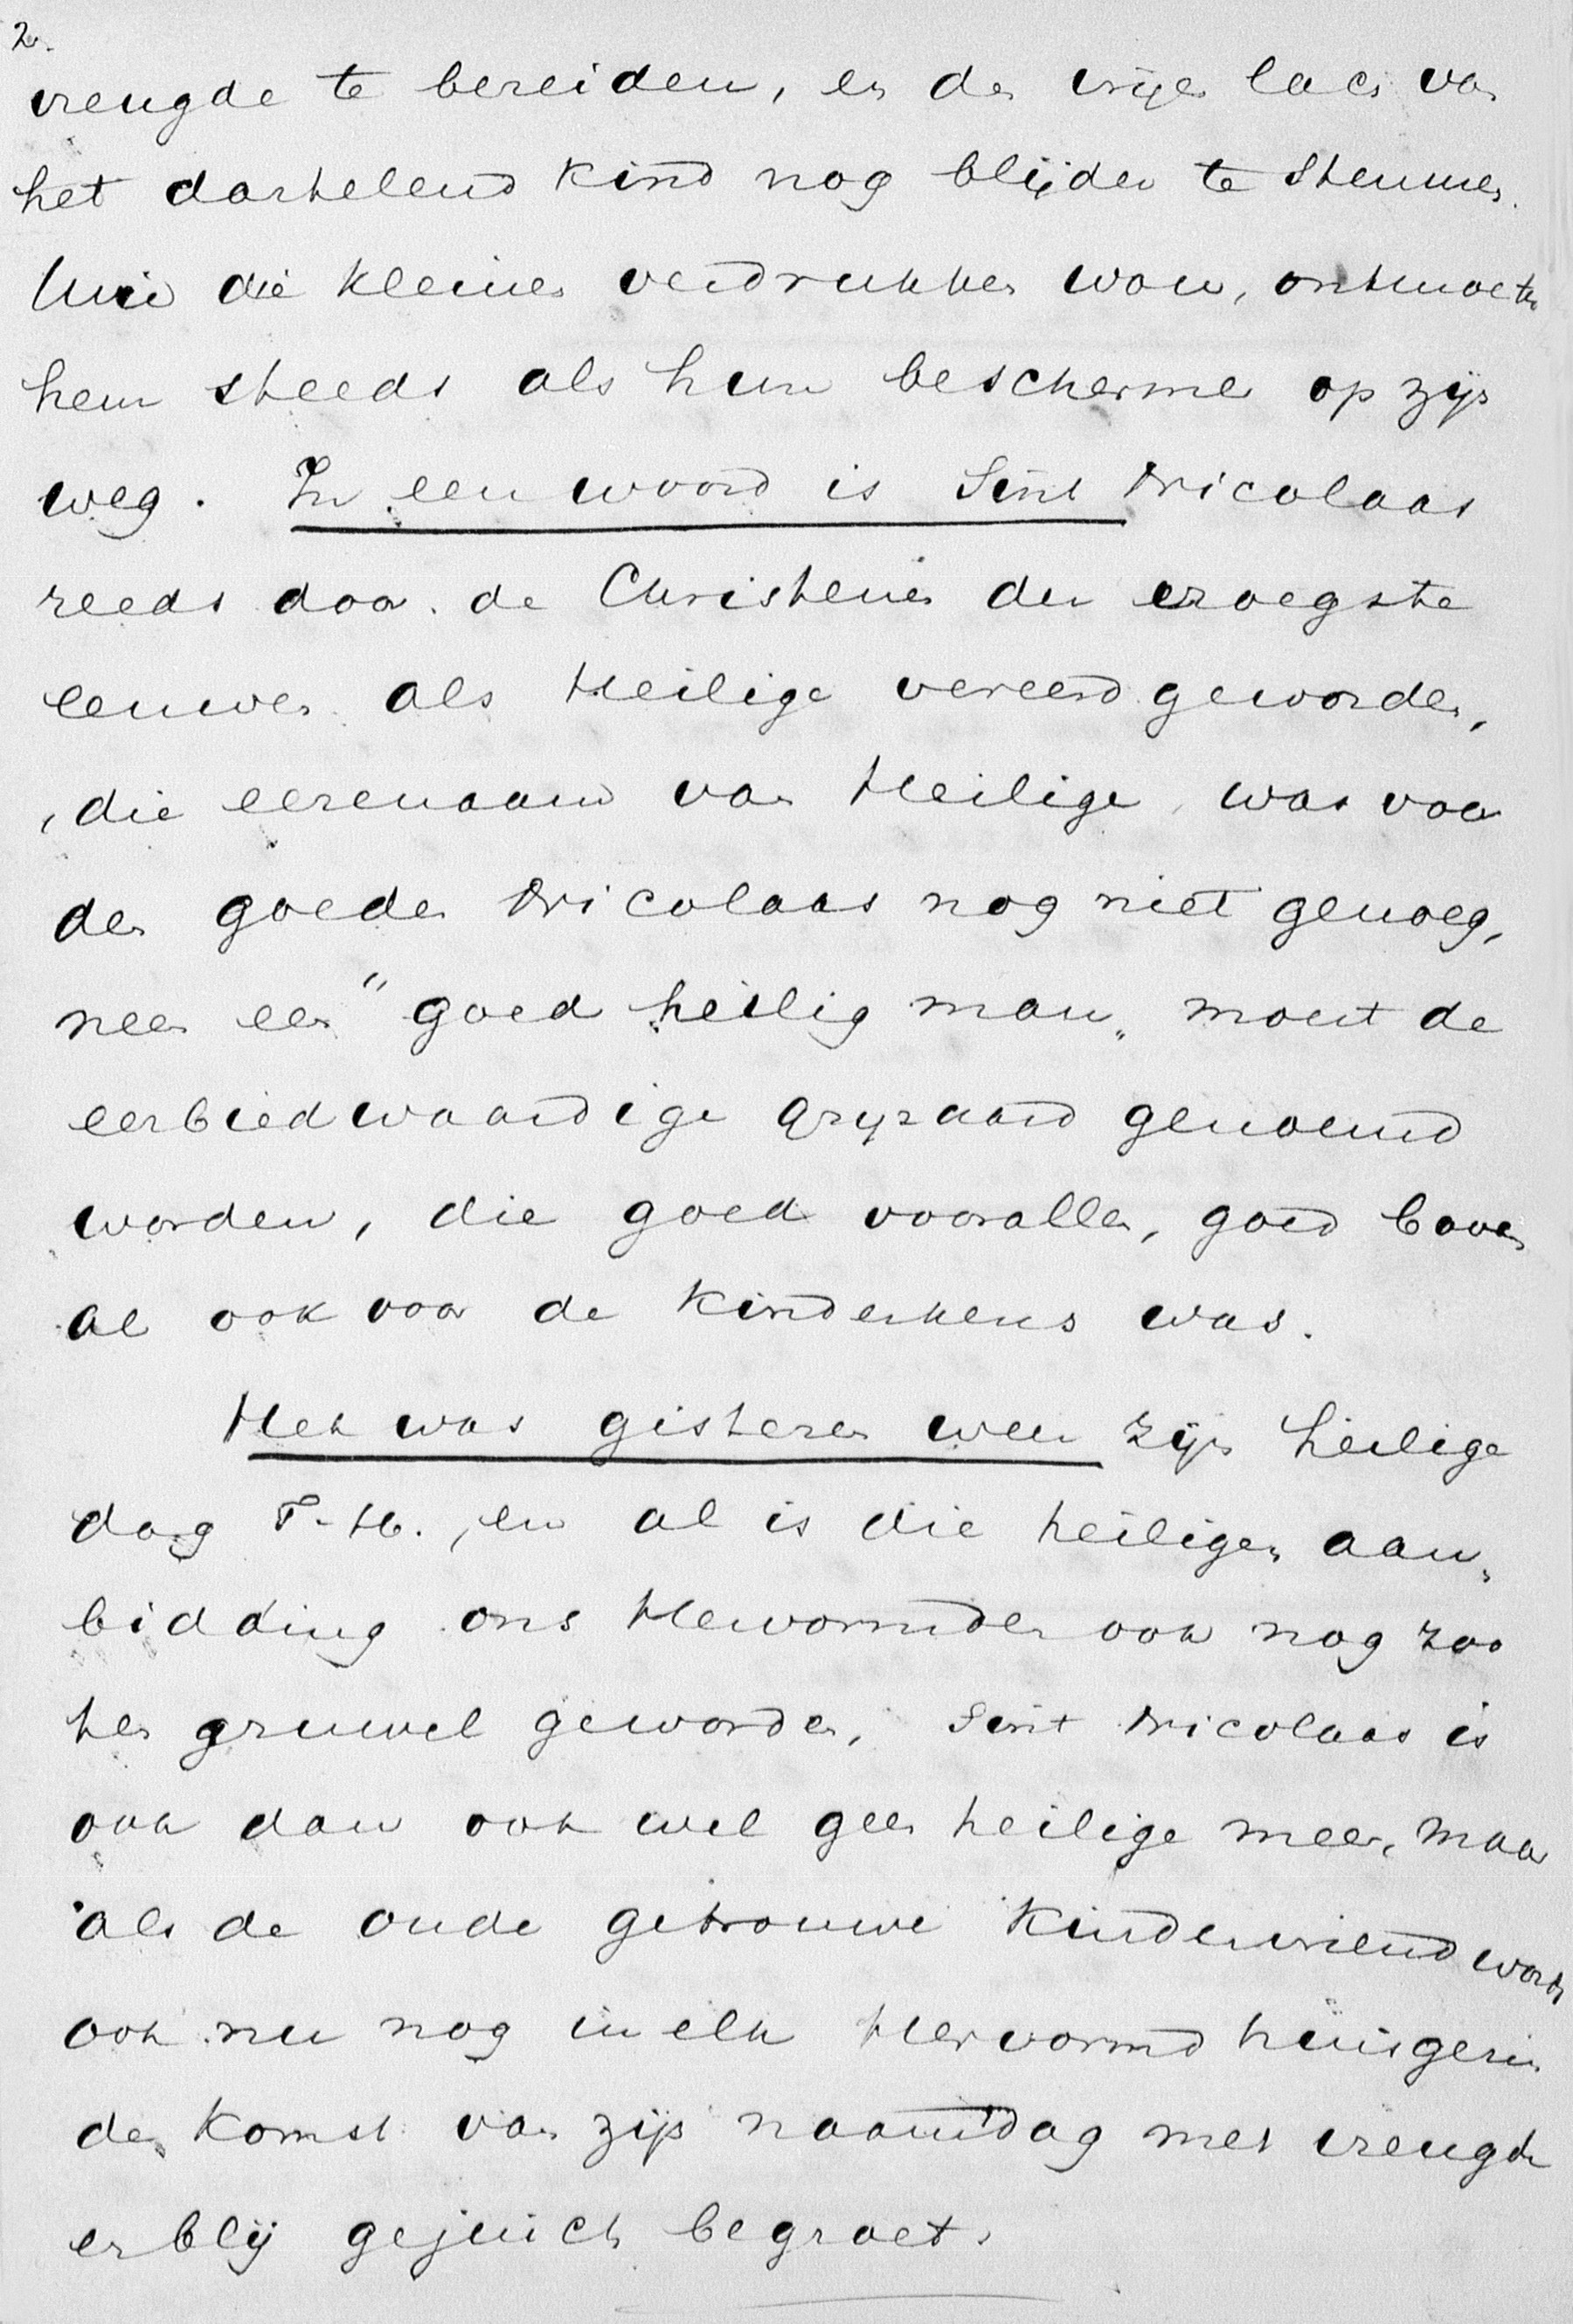 2.
vreugde te bereiden, en den vrijen lach van
het dartelend kind nog blijder te stemmen.
Wie die kleinen verdrukken wou, ontmoette
hem steeds als hun beschermer op zijn
weg. In een woord is Sint Nicolaas
reeds door de Christenen der vroegste
eeuwen als Heilige vereerd geworden,
, die eerenaam van Heilige, was voor
den goeden Nicolaas nog niet genoeg,
neen een "goed heilig man„ moest de
eerbiedwaardige grijzaard genoemd
worden, die goed voor allen, goed boven
al ook voor de kinderkens was.
Het was gisteren weer zijn heilige
dag T. H., en al is die heiligen aan„
bidding ons Hervormden ook nog zoo
ten gruwel geworden, Sint Nicolaas is
ook dan ook wel geen heilige meer, maar
als de oude getrouwe kindervriend wordt
ook nu nog in elk Hervormd huisgezin
de komst van zijn naamdag met vreugde
en blij gejuich begroet.